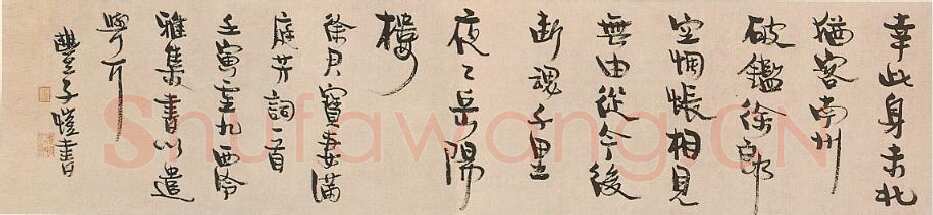 幸此身未北
猶客南州
破鑑徐郎
空惆悵相見
無由從今後
断魂千里
夜々岳陽
樓
徐君寶妻滿
庭芳詞一首
壬寅重九西泠
雅集書以遣
興耳
豐子愷書
Shufawang.CN